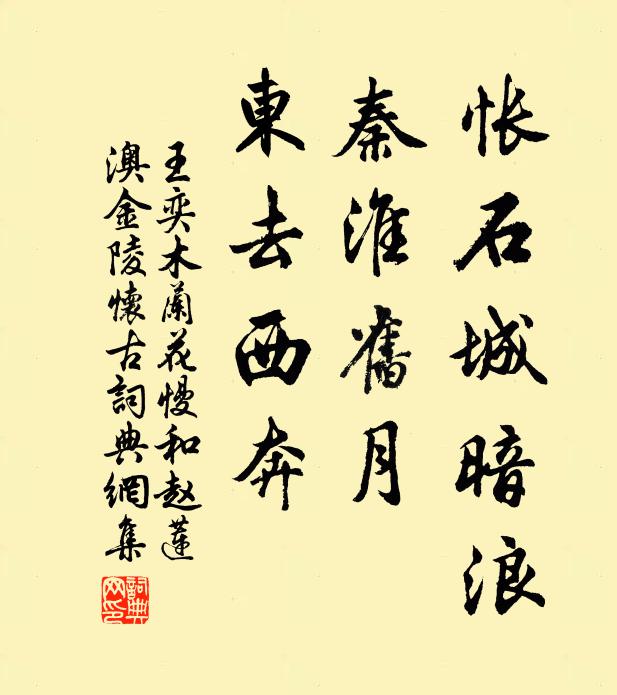 悵石城暗浪
秦淮舊月
東去西奔
王奕木蘭花慢和赵蓮
澳金陵懷古詞典網集
詞典
网印